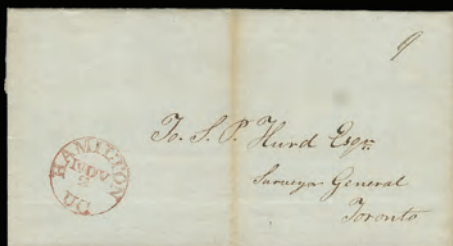 9
To. S. P. Hurd Esqr.
Surveyor General
Toronto
HAMILTON
NOV
2
U.C